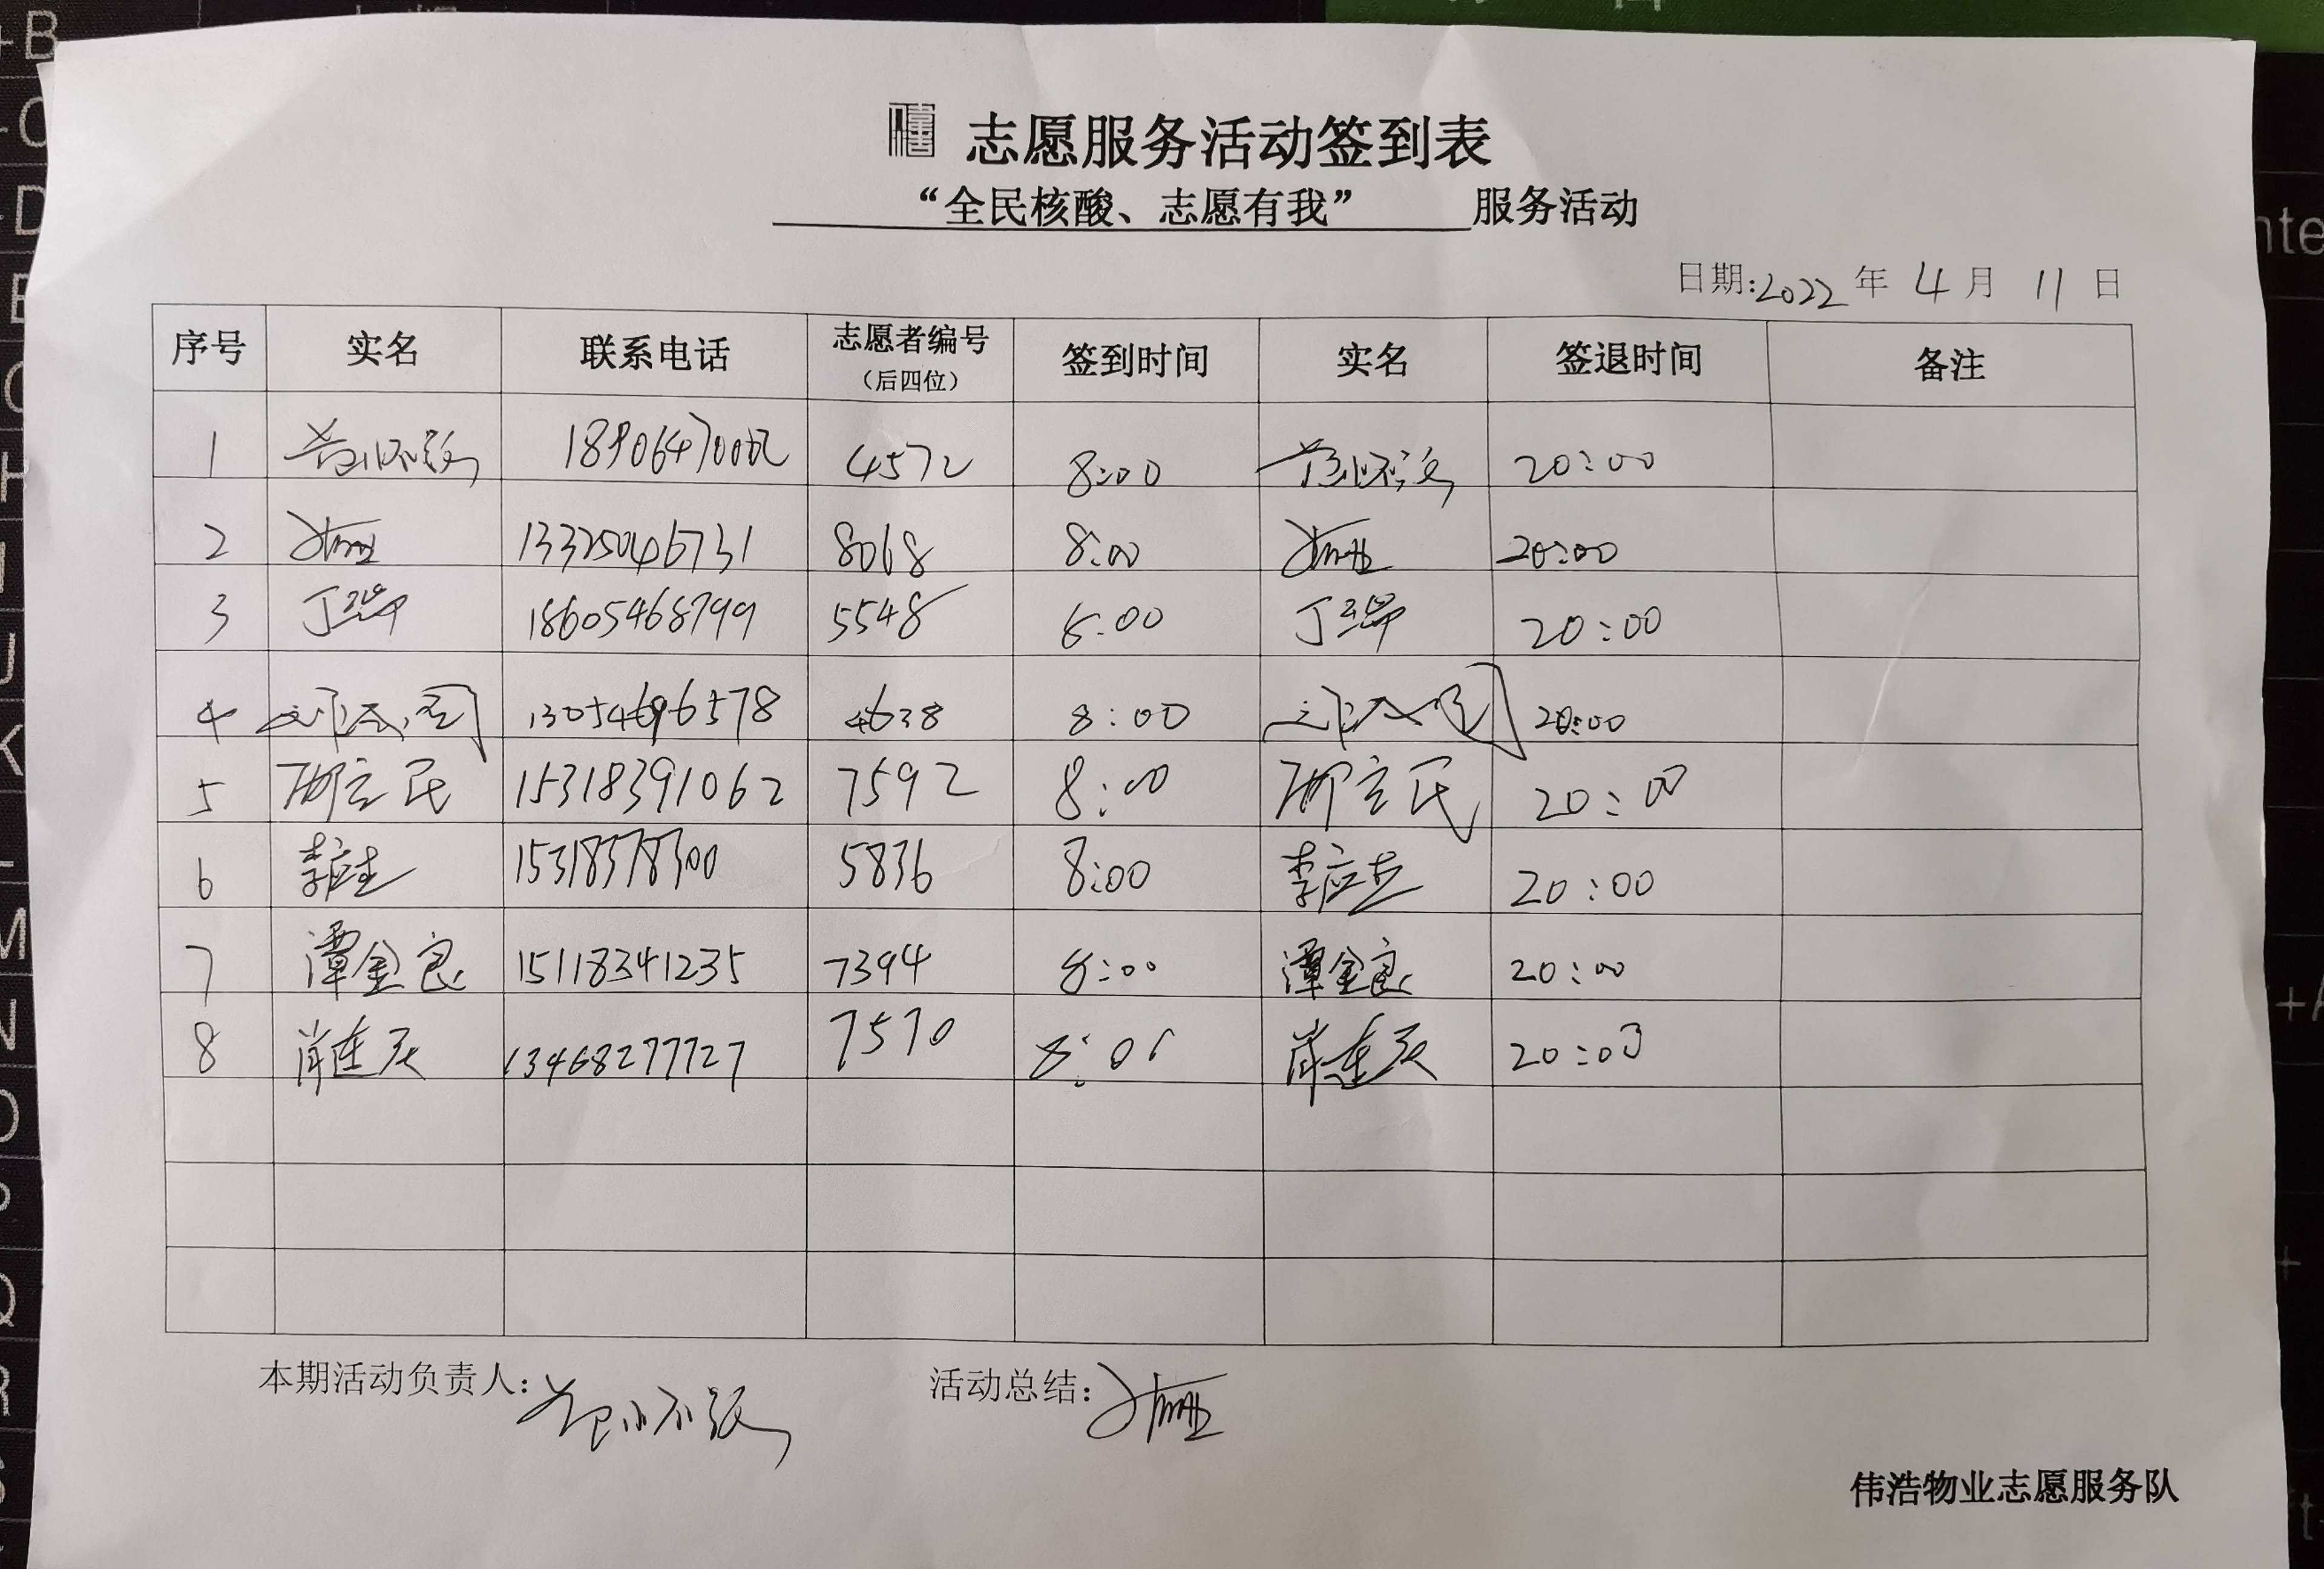 志愿服务活动签到表
“全民核酸、志愿有我” 服务活动
日期:2022 年 4 月 11 日
序号 实名 联系电话 志愿者编号（后四位） 签到时间 实名 签退时间 备注
1 4572 8:00 20:00
2 13325046731 8068 8:00 20:00
3 丁 18605468799 5548 8:00 丁 20:00
4 13054696578 4638 8:00 20:00
5 邴立民 15318391062 7592 8:00 邴立民 20:00
6 李应 15318378300 5836 8:00 李应 20:00
7 谭金良 15118341235 7394 8:00 谭金良 20:00
8 肖连庆 13468277727 7570 8:00 肖连庆 20:00
本期活动负责人: 活动总结:
伟浩物业志愿服务队